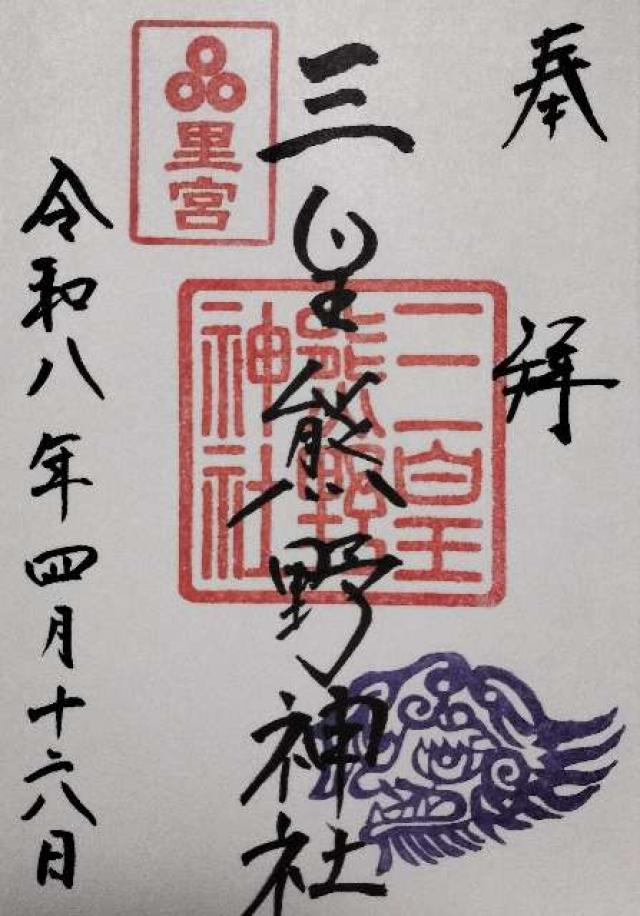 奉拝
三皇熊野神社
三皇熊野神社
里宮
令和八年四月十六日